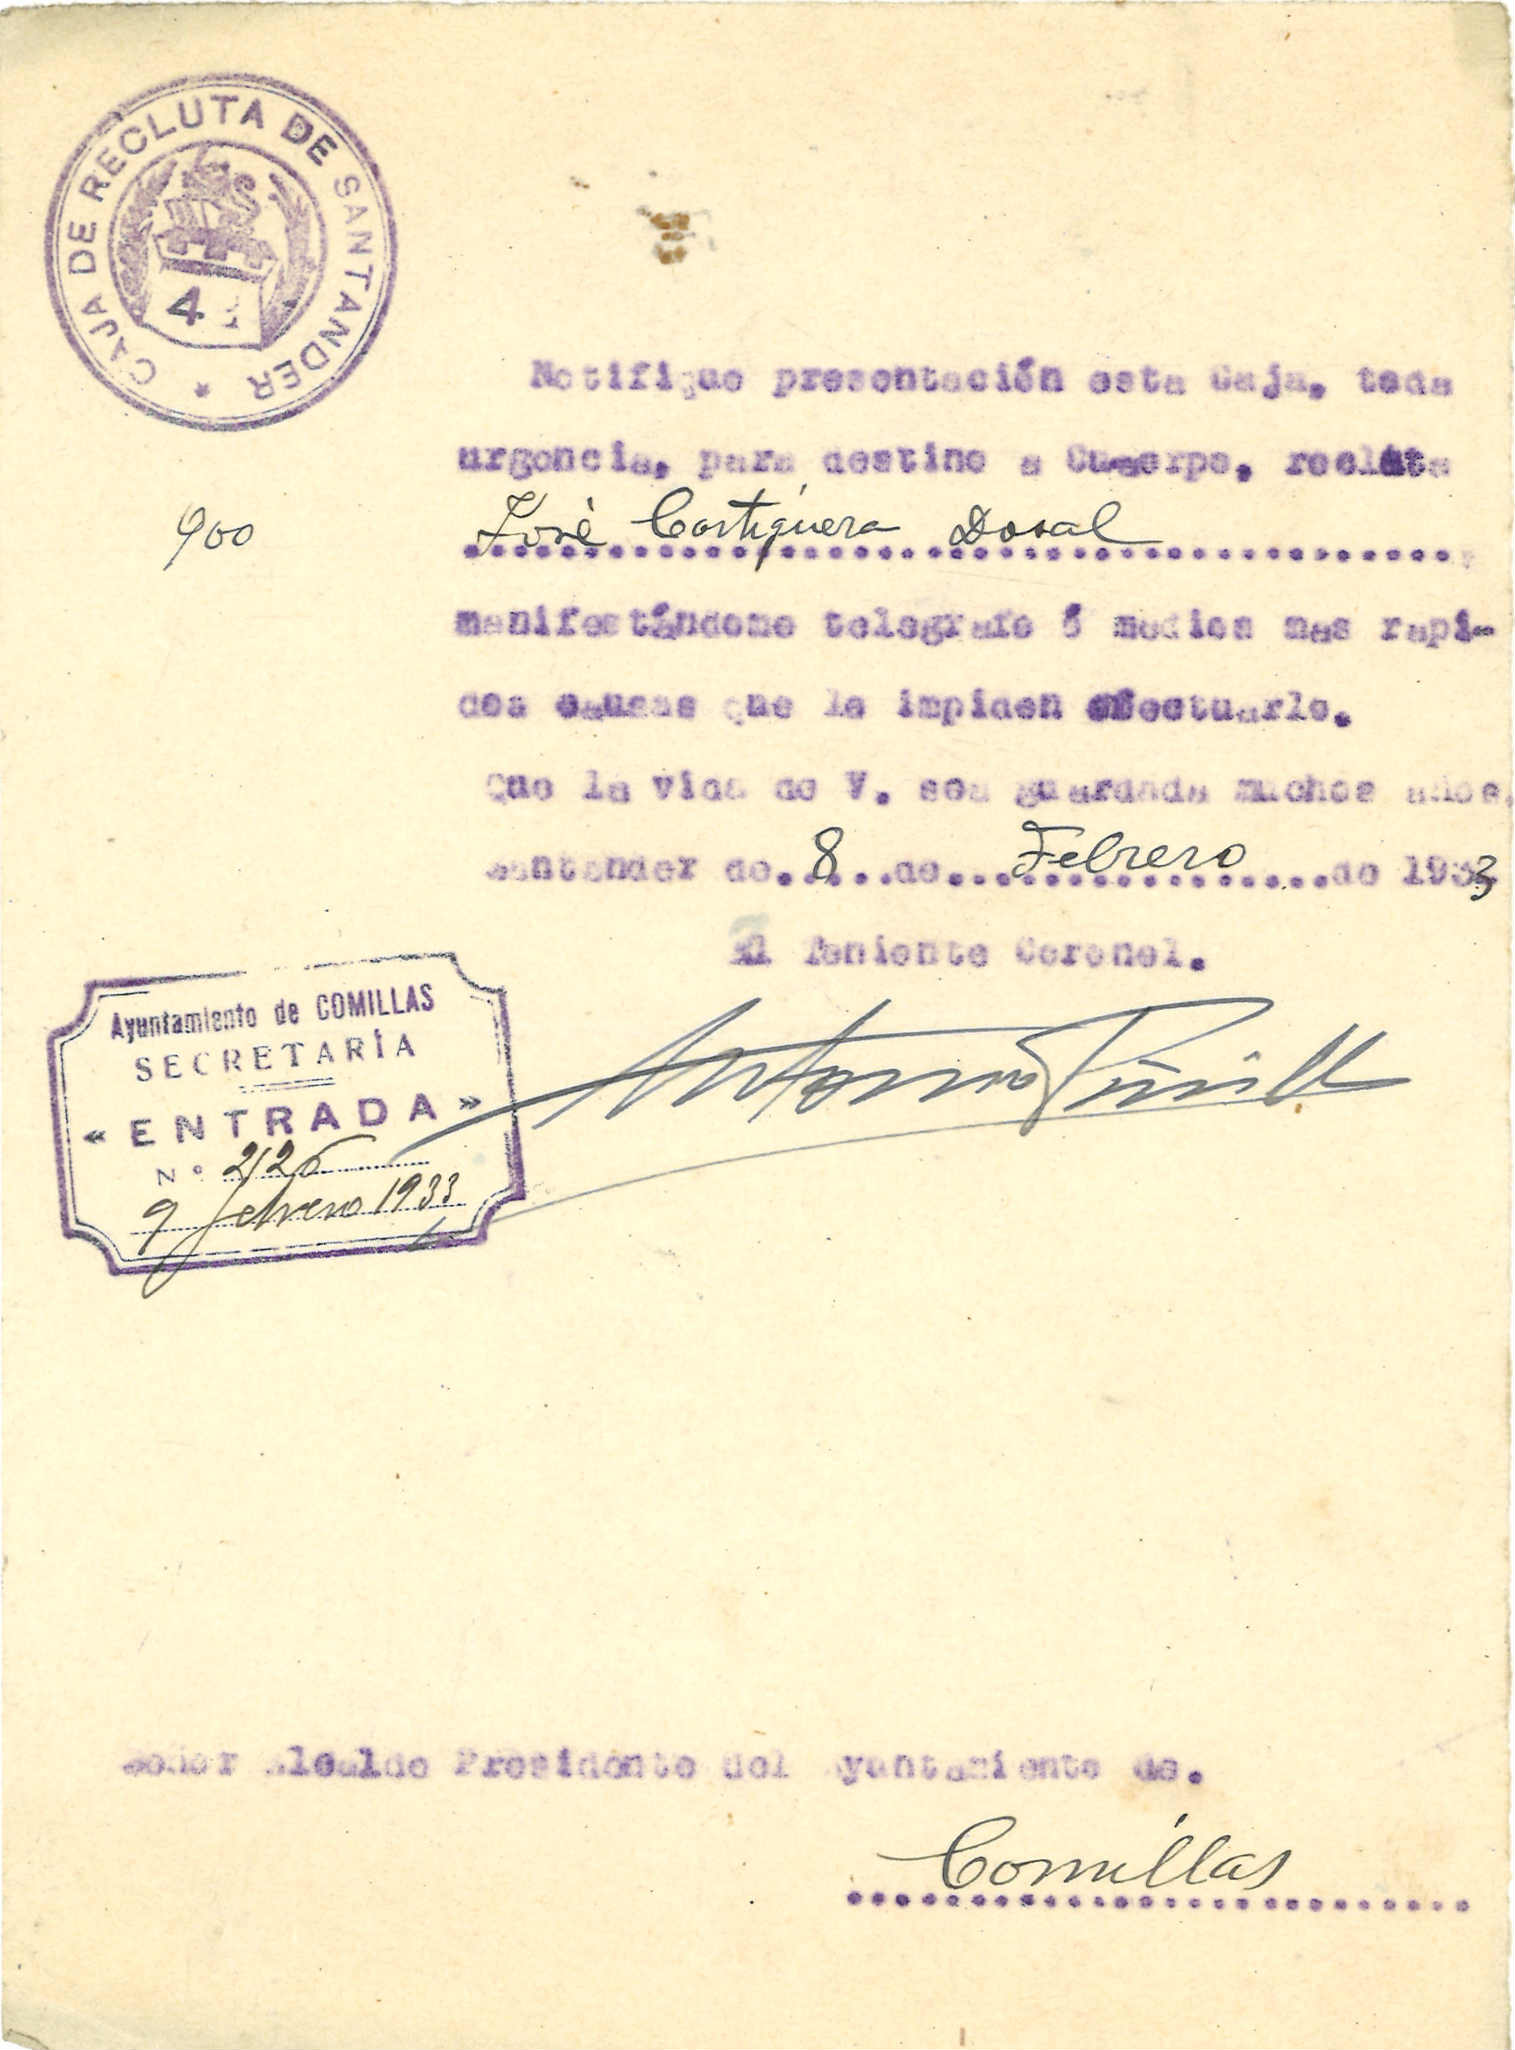 CAJA DE RECLUTA DE SANTANDER *
4
Notifique presentación esta Caja, toda
urgencia, para destino a Cuaerpo, recluta
900 José Cortiguera Dosal
manifestándome telegrafo ó medios mas rapi-
dos causas que le impiden efectuarlo.
Que la vida de V. sea guardada muchos años.
Santander de 8 de Febrero de 1933
El Teniente Coronel.
Antonio
Ayuntamiento de COMILLAS
SECRETARÍA
« ENTRADA »
N° 226
9 febrero 1933
Señor Alcalde Presidente del Ayuntamiento de.
Comillas